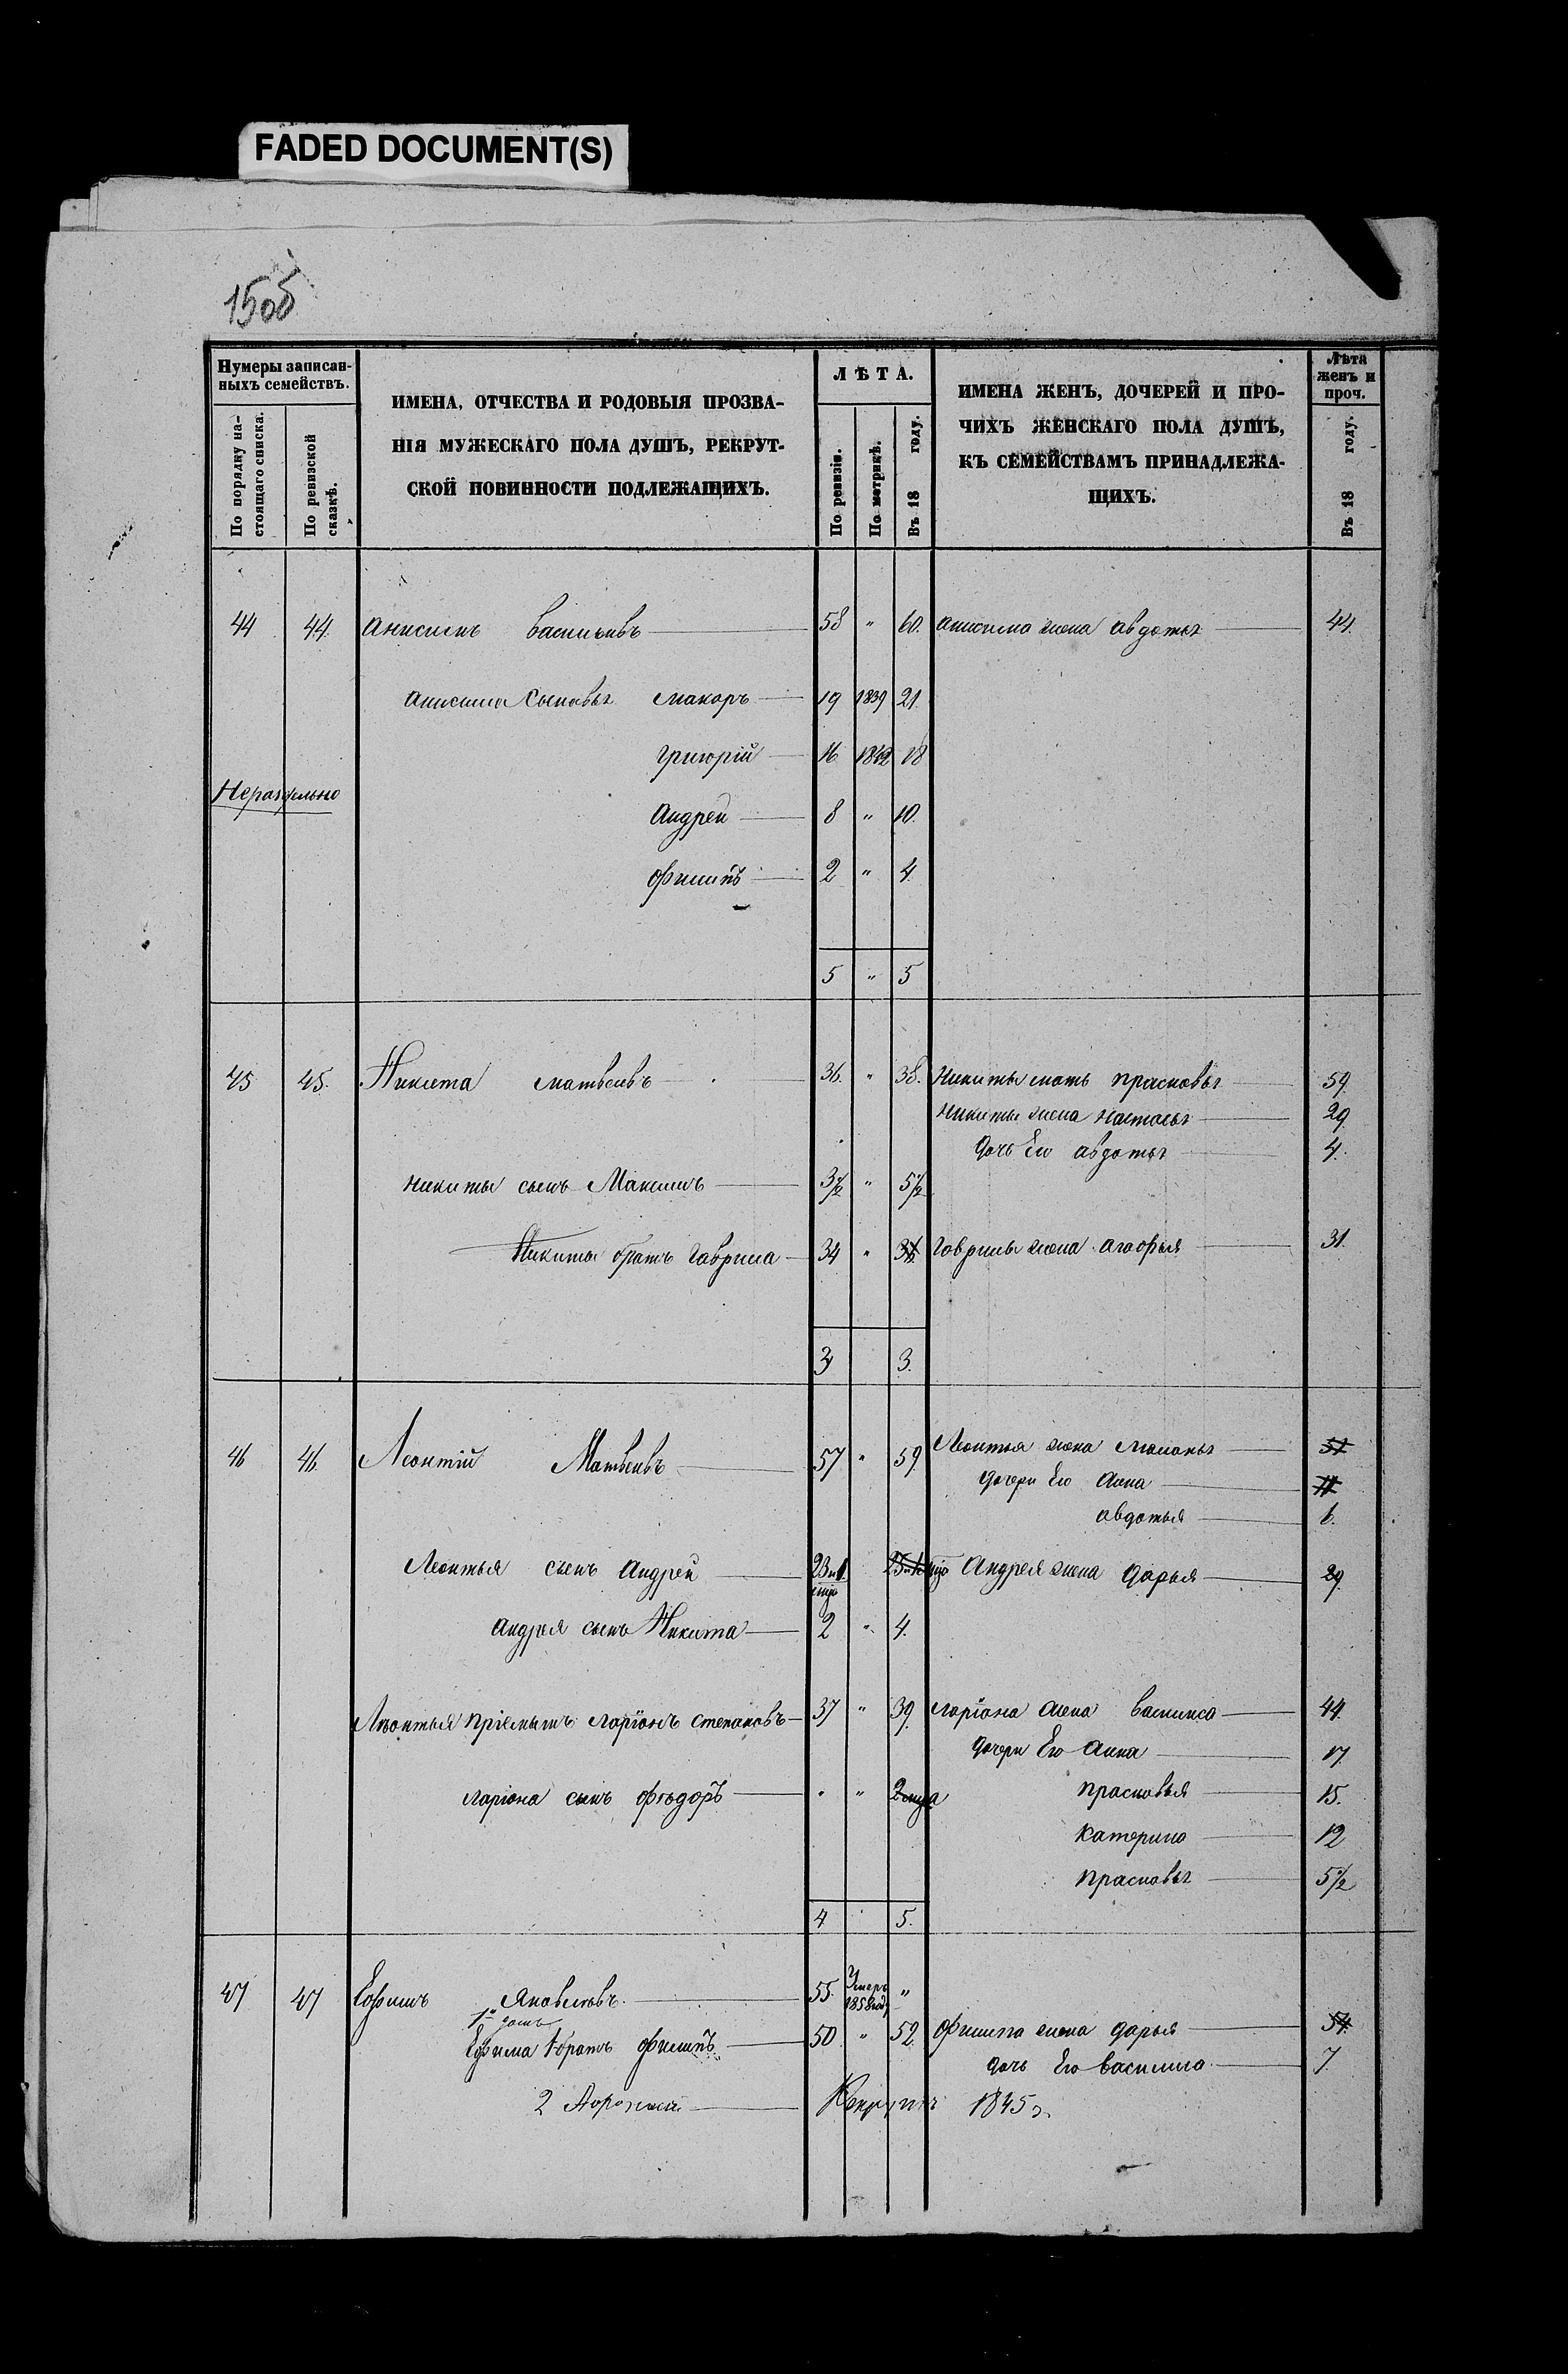 FADED DOCUMENT(S)
150б
Нумеры записан-
ныхъ семействъ.
По порядку на-
стоящаго списка.
По ревизской
сказкѣ.
ИМЕНА, ОТЧЕСТВА И РОДОВЫЯ ПРОЗВА-
НІЯ МУЖЕСКАГО ПОЛА ДУШЪ, РЕКРУТ-
СКОЙ ПОВИННОСТИ ПОДЛЕЖАЩИХЪ.
ЛѢТА.
По ревизіи.
По метрикѣ.
Въ 18 году.
ИМЕНА ЖЕНЪ, ДОЧЕРЕЙ И ПРО-
ЧИХЪ ЖЕНСКАГО ПОЛА ДУШЪ,
КЪ СЕМЕЙСТВАМЪ ПРИНАДЛЕЖА-
ЩИХЪ.
Лѣта
женъ и
проч.
Въ 18 году.
44 44. Анисимъ Васильивъ 58 " 60. Анисима жена авдотья 44.
Анисима Сыновья Макаръ 19 1839 21.
Григорій 16. 1842 18
Нераздельно
Андрей 8 " 10.
Филипъ 2 " 4.
5 " 5
45 45. Никита матвеивъ 36. " 38. Никиты мать прасковья 59.
Никиты жена настасья 29.
дочь Его авдотья 4.
никиты сынъ Максимъ 3½ " 5½
Никиты братъ Гаврила 34 " Гаврилы жена агафья 31.
3 3.
46 46. Леонтій Матвеивъ 57 " 59. Леонтья жена маланья 57
дочери Его Анна 11
авдотья 6.
Леонтья сынъ Андрей Андрея жена дарья 29.
Андрея сынъ Никита 2 " 4.
Леонтья пріемышъ ларіонъ степановъ 37 " 39. ларіона жена василиса 44.
дочери Его Анна 17.
ларіона сынъ фѣодоръ " " прасковья 15.
катерина 12
прасковья 5½
4 5.
47 47 Ефимъ Яковлевъ 55. Умеръ "
1858 год.
Ефима 1 братъ филипъ 50 " 52. филипа жена дарья 54.
дочь Его василиса 7.
2 Рекрутъ 1845 г.